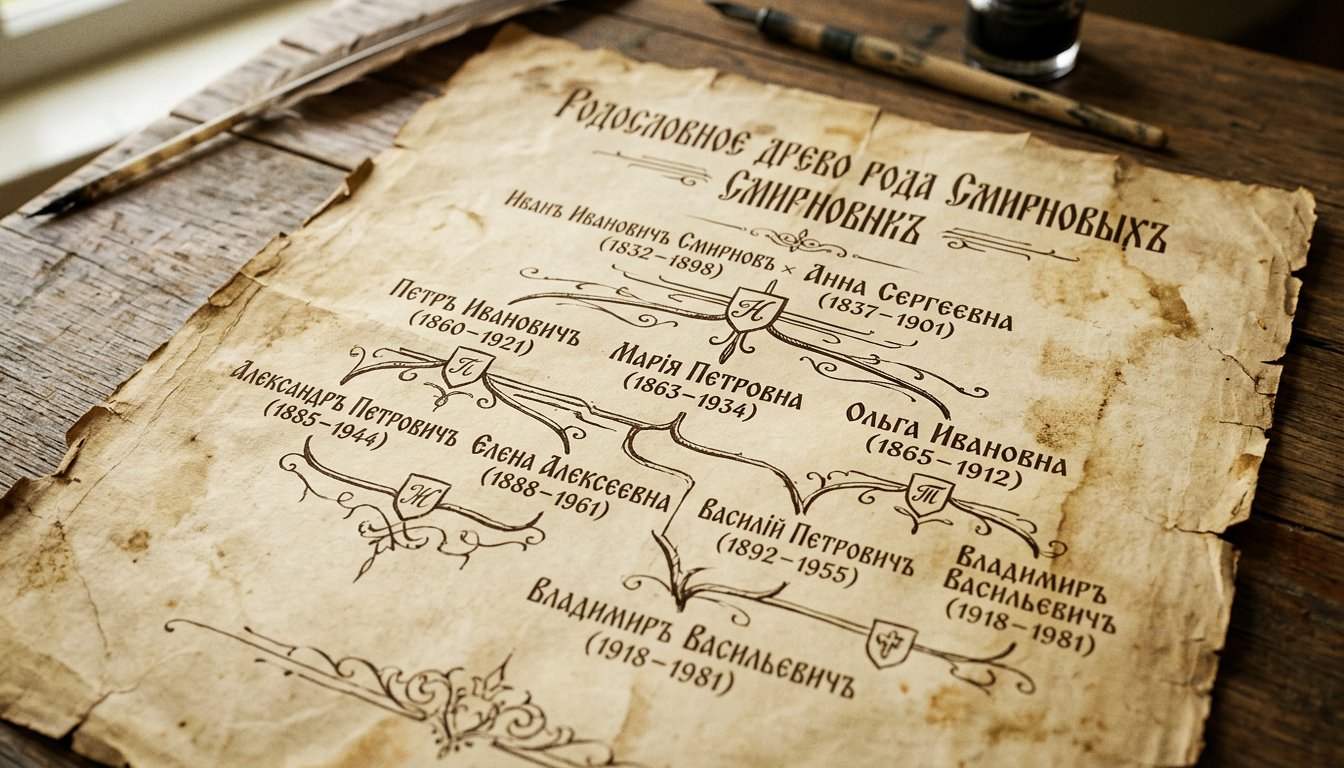 Родословное древо рода Смирновых
Смирновик҄ъ
Иванъ Ивановичъ Смирновъ × Анна Сергеевна
(1832–1898)
(1837–1901)
Петръ Ивановичъ
(1860–1921)
Марія Петровна
(1863–1934)
Ольга Ивановна
(1865–1912)
Александръ Петровичъ
(1885–1944)
Елена Алексеевна
(1888–1961)
Василій Петровичъ
(1892–1955)
Владимиръ
Васильевичъ
(1918–1981)
Владимиръ Васильевичъ
(1918–1981)